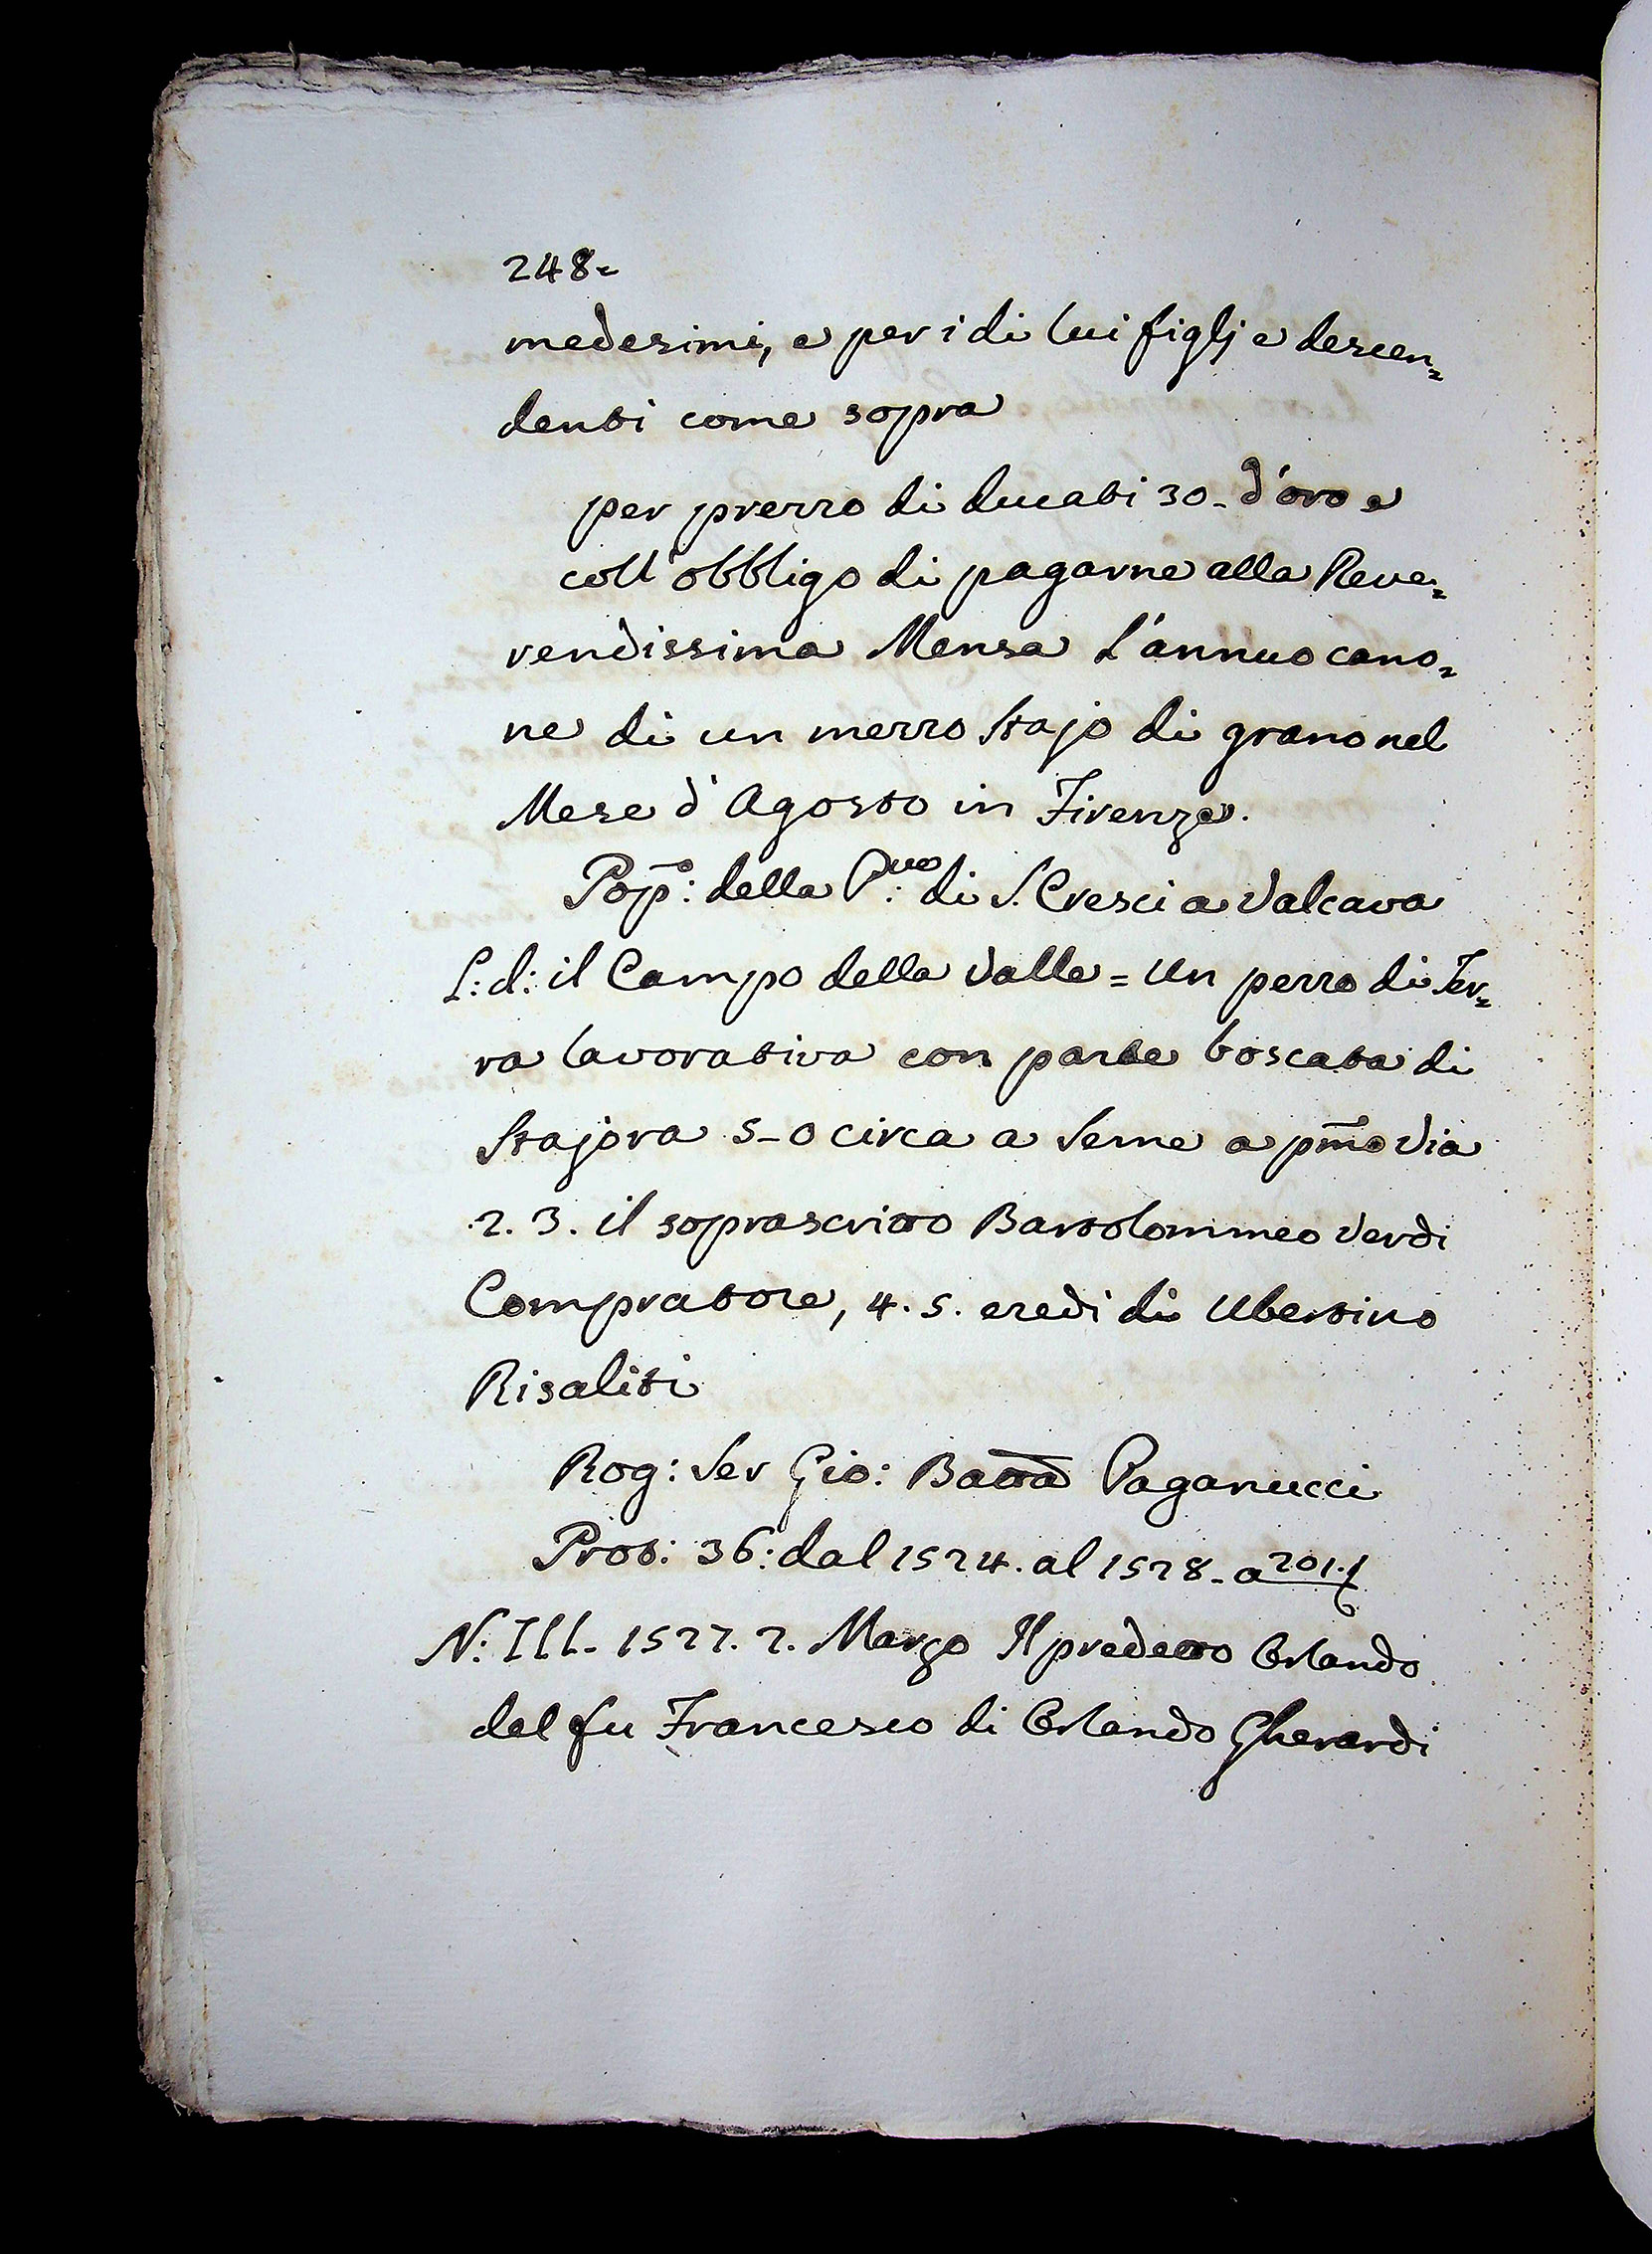 248=
medesimi, e per i di lui figlj e descen=
denti come sopra
per prezzo di ducati 30- d'oro e
coll'obbligo di pagarne alla Reve=
rendissima Mensa l'annuo cano=
ne di un mezzo Stajo di grano nel
Mese d'Agosto in Firenze.
Pop̄o: della P.ve di S. Cresci a Valcava
L: d: il Campo della Valle = Un pezzo di Ter=
ra lavorativa con parte boscata di
Stajora 5-0 circa a Seme a pm̄o Via
2. 3. il soprascritto Bartolommeo Verdi
Compratore, 4. 5. eredi di Ubertino
Risaliti
Rog: Ser Gio: Batta Paganucci
Prot: 36: dal 1524. al 1528- a 201. t
N: III- 1527. 2. Marzo Il predetto Orlando
del fu Francesco di Orlando Gherardi